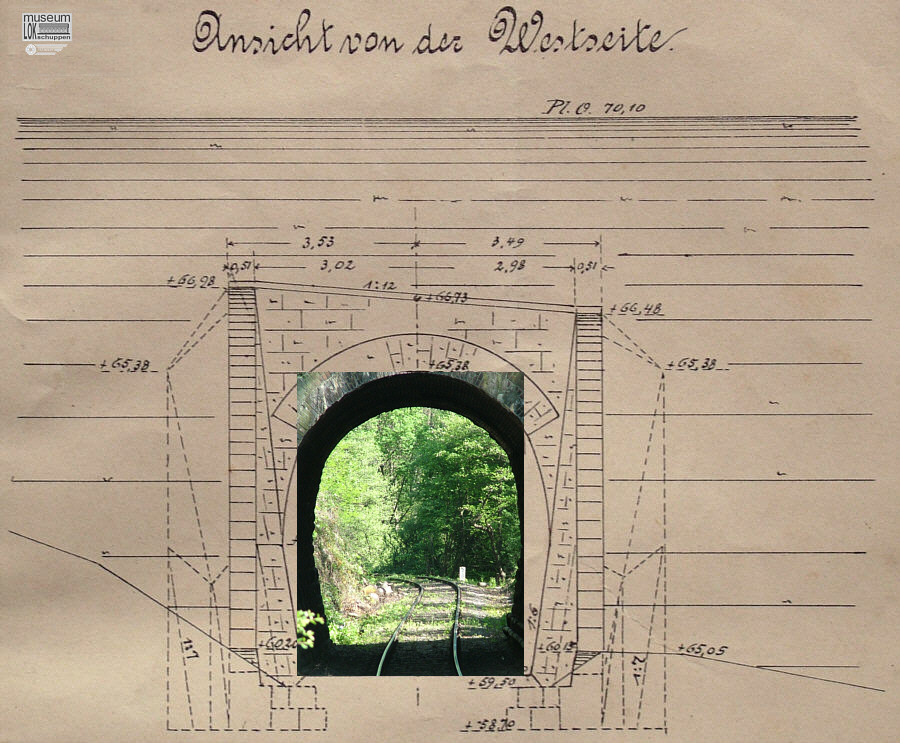 museum
LOK
schuppen
Ansicht von der Westseite.
Pl. O. 70,10
3,53 3,49
0,51 3,02 2,98 0,51
+66,98 1:12 +66,73 +66,48
+65,38 +65,38 +65,38
1:6
1:7 +60,15 1:7 +65,05
+59,50
+58,70